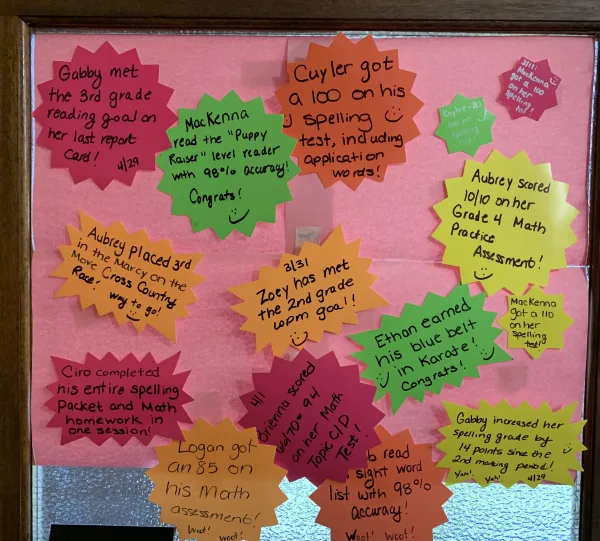 Gabby met
the 3rd grade
reading goal on
her last report
Card!
4/29
MacKenna
read the "Puppy
Raiser" level reader
with 98% accuracy!
Congrats!
Cuyler got
a 100 on his
spelling
test, including
application
words!
3/11:
MacKenna
got a 100
on her
spelling
test!
Aubrey scored
10/10 on her
Grade 4 Math
Practice
Assessment!
Aubrey placed 3rd
in the Marcy on the
Move Cross Country
Race! Way to go!
3/31
Zoey has met
the 2nd grade
wpm goal!
Ethan earned
his blue belt
in Karate!
Congrats!
MacKenna
got a 110
on her
spelling
test!
Ciro completed
his entire spelling
Packet and Math
homework in
one session!
4/1
scored
= 94
on her Math
Topic C/D
Test!
Gabby increased her
Spelling grade by
14 points since the
2nd marking period!
Yah! Yah! 4/29
Logan got
an 85 on
his Math
assessment!
Woot! Woot!
b read
sight word
list with 98%
accuracy!
Woot! Woot!